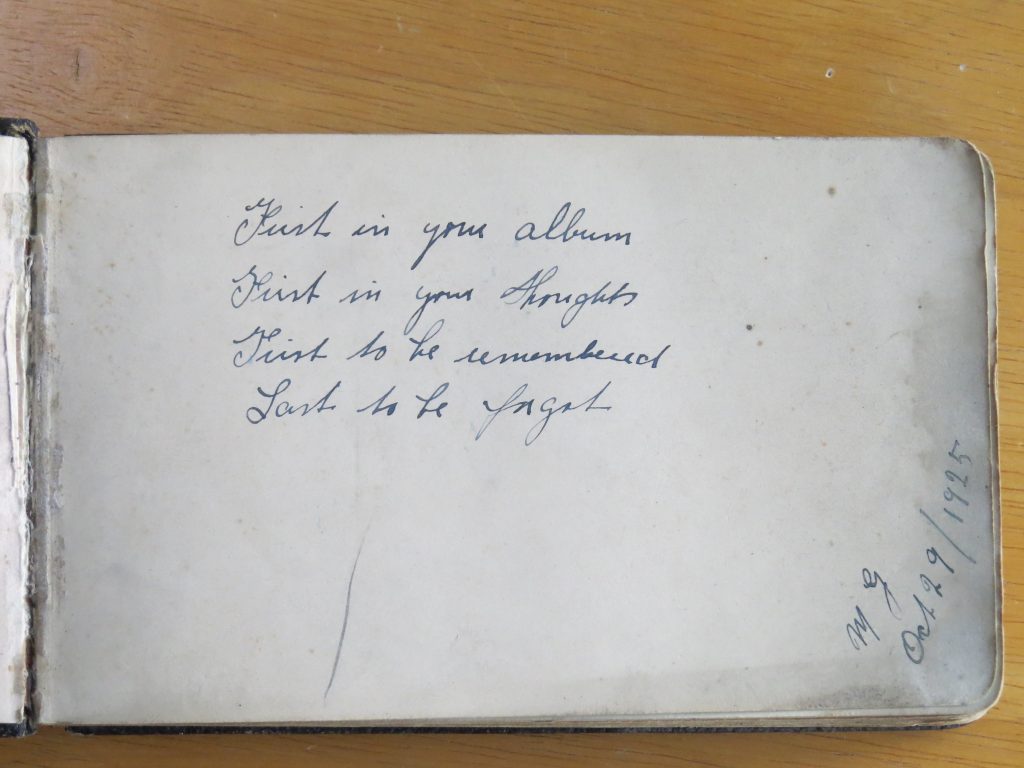 First in your album
First in your thoughts
First to be remembered
Last to be forgot
M G
Oct 29/1925